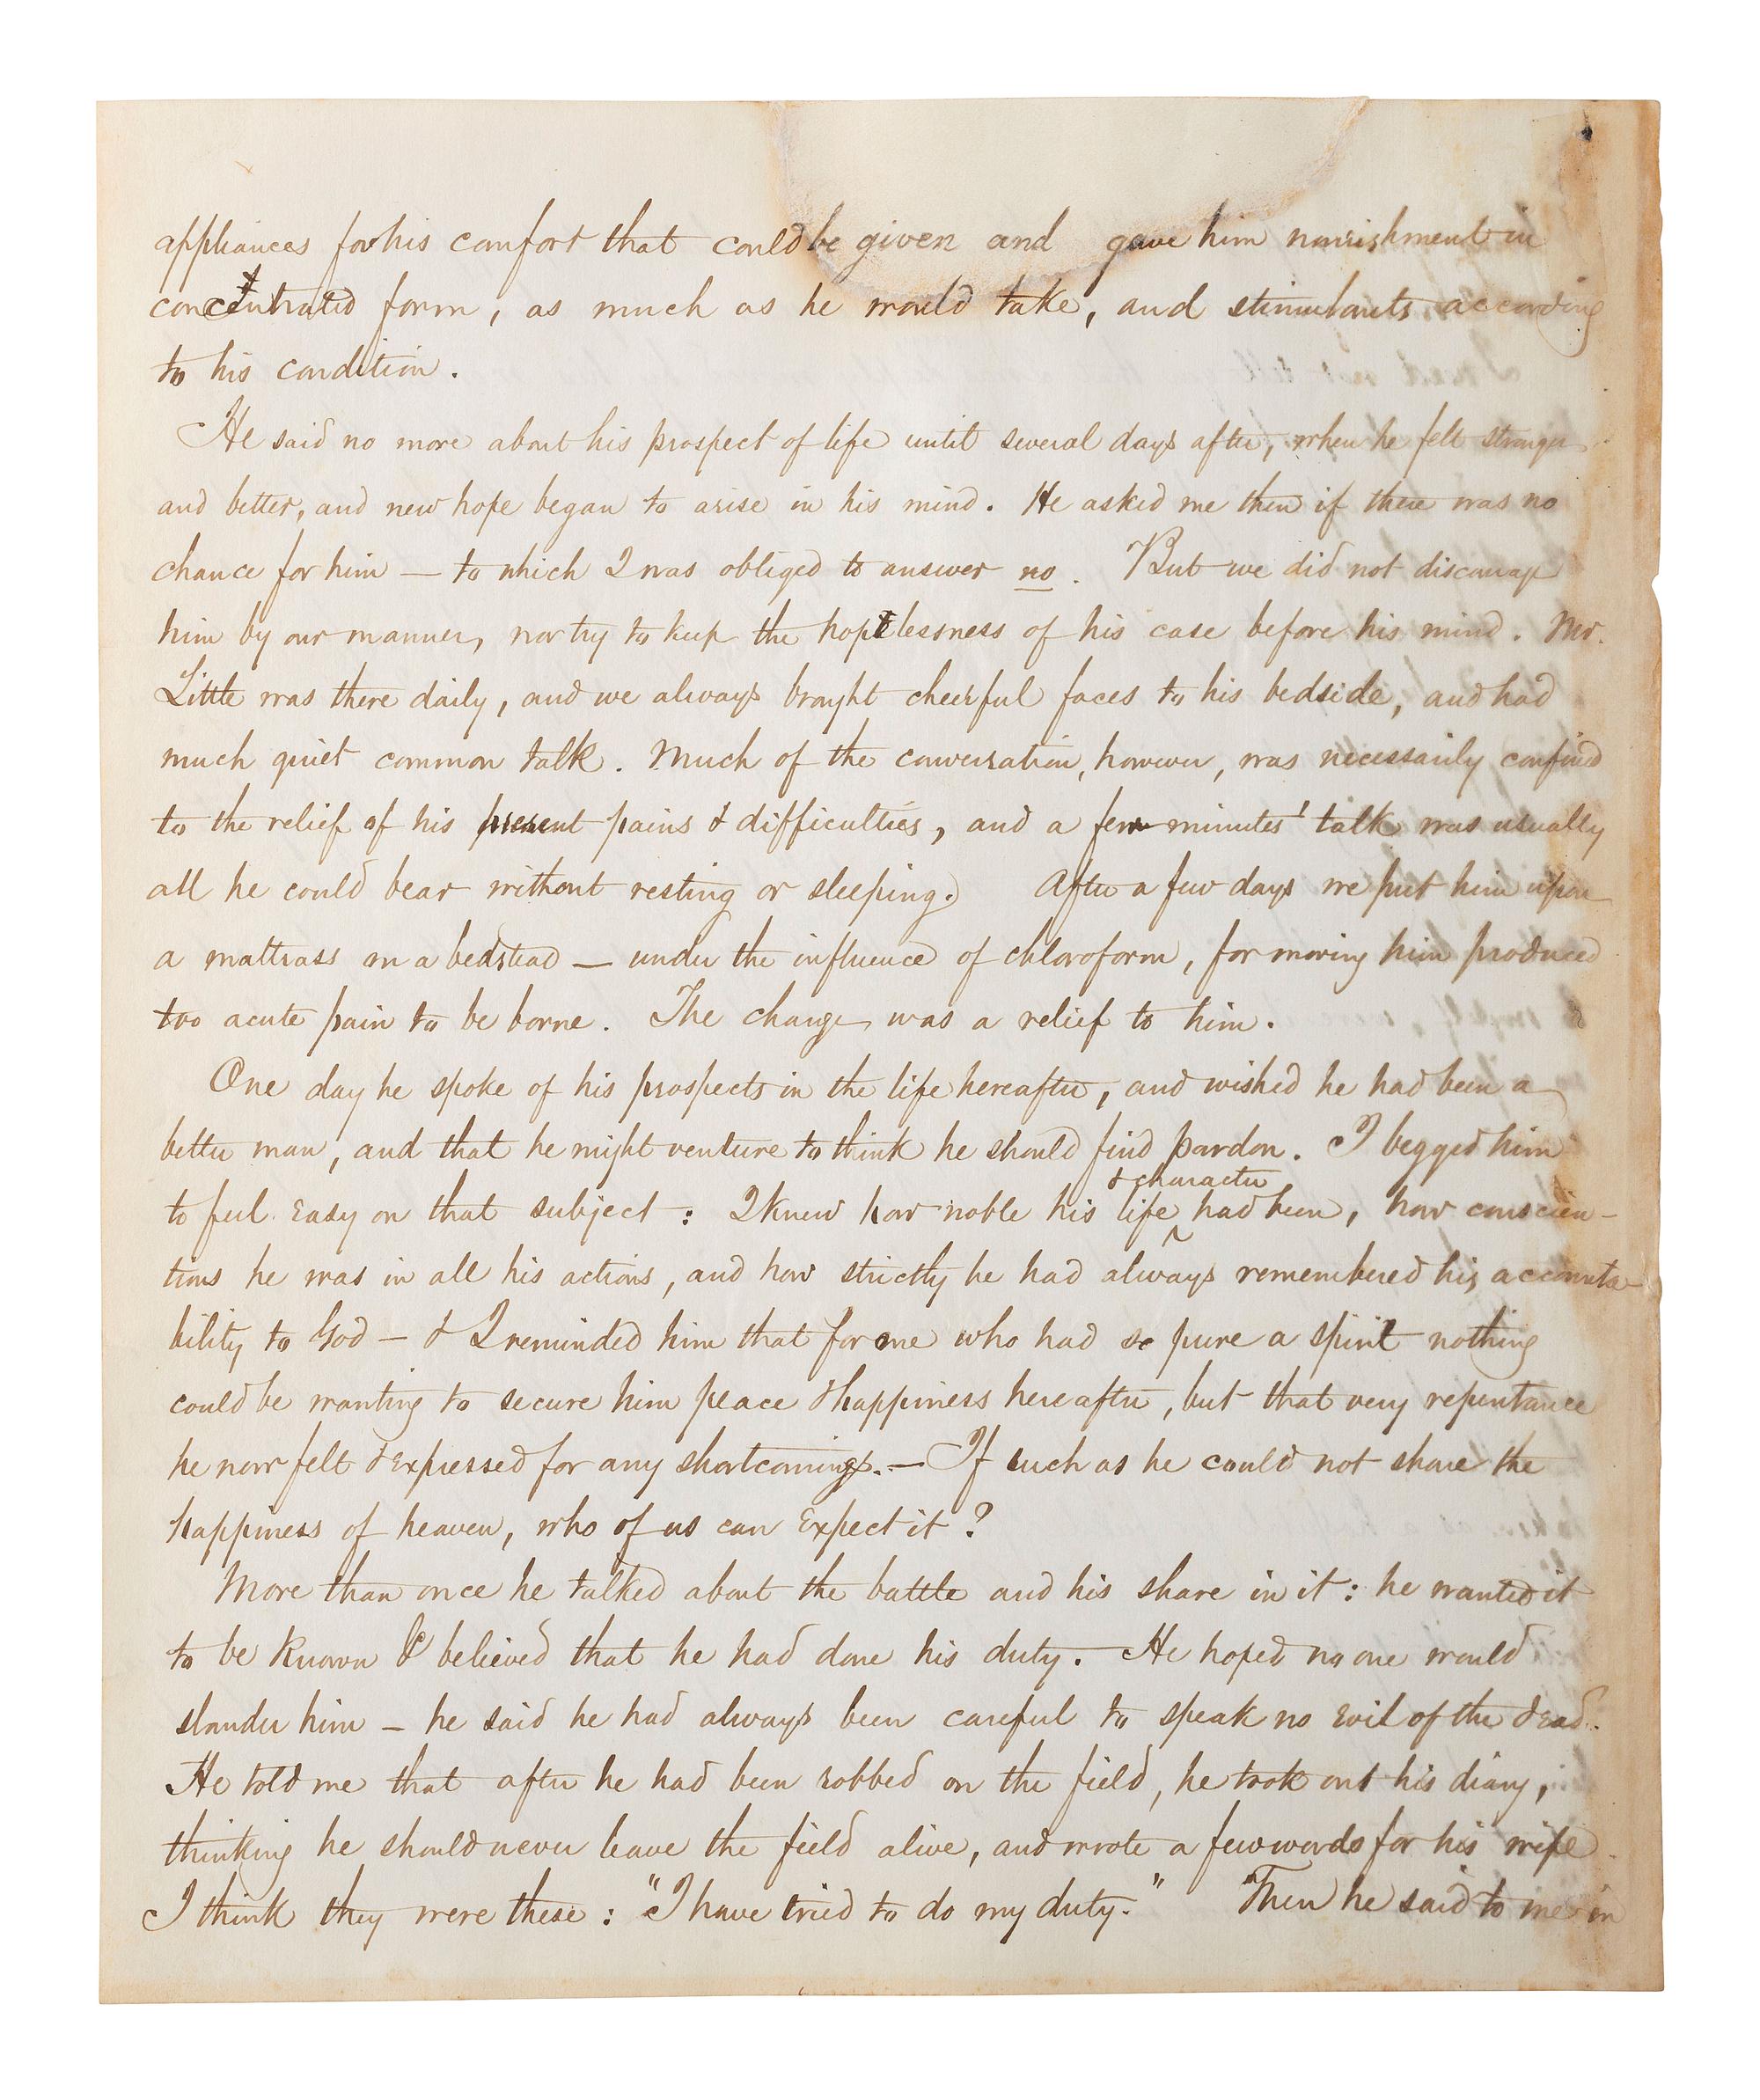 appliances for his comfort that could be given and gave him nourishment in
concentrated form, as much as he would take, and stimulants according
to his condition.
He said no more about his prospect of life until several days after, when he felt stronger
and better, and new hope began to arise in his mind. He asked me then if there was no
chance for him — to which I was obliged to answer no. But we did not discourage
him by our manner, nor try to keep the hopelessness of his case before his mind. Mr.
Little was there daily, and we always brought cheerful faces to his bedside, and had
much quiet common talk. Much of the conversation, however, was necessarily confined
to the relief of his present pains & difficulties, and a few minutes' talk was usually
all he could bear without resting or sleeping. After a few days we put him upon
a mattrass on a bedstead — under the influence of chloroform, for moving him produced
too acute pain to be borne. The change was a relief to him.
One day he spoke of his prospects in the life hereafter, and wished he had been a
better man, and that he might venture to think he should find pardon. I begged him
to feel easy on that subject: I knew how noble his life & character had been, how conscien-
tious he was in all his actions, and how strictly he had always remembered his accounta-
bility to God — & I reminded him that for one who had so pure a spirit nothing
could be wanting to secure him peace & happiness hereafter, but that very repentance
he now felt & expressed for any shortcomings. — If such as he could not share the
happiness of heaven, who of us can expect it?
More than once he talked about the battle and his share in it: he wanted it
to be known & believed that he had done his duty. He hoped no one would
slander him — he said he had always been careful to speak no evil of the dead.
He told me that after he had been robbed on the field, he took out his diary,
thinking he should never leave the field alive, and wrote a few words for his wife
I think they were these: "I have tried to do my duty." Then he said to me in